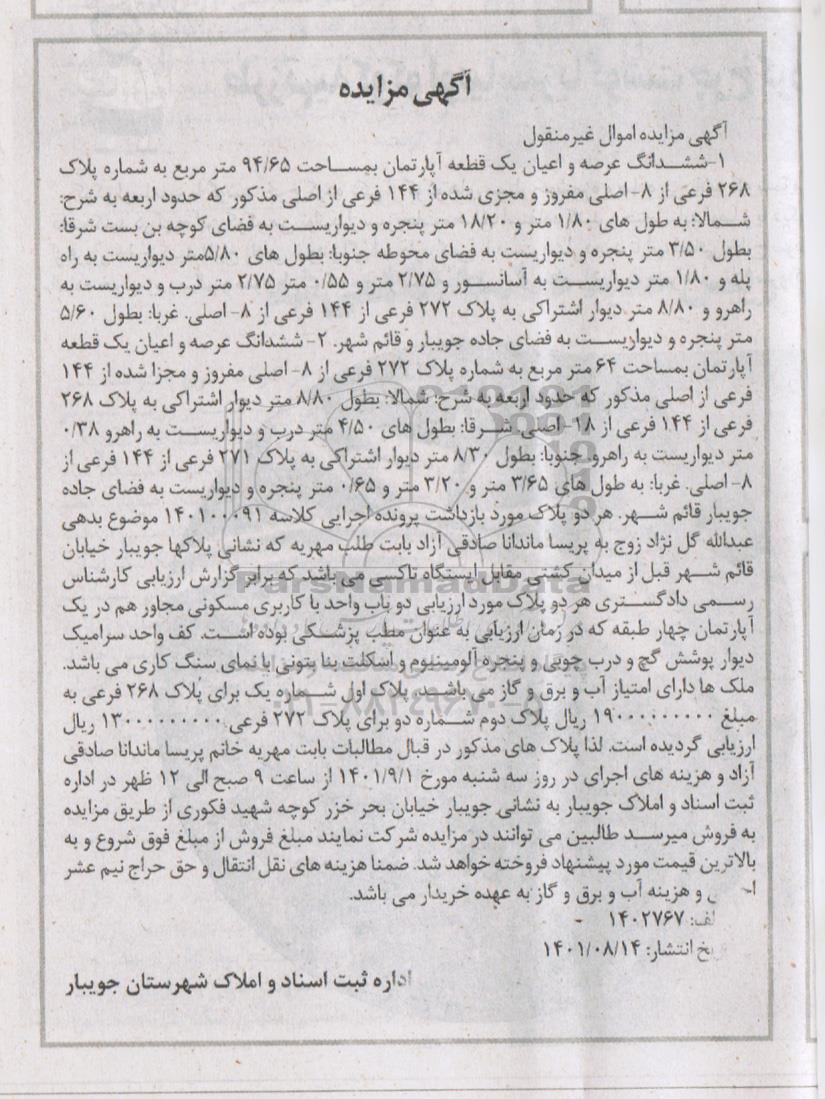 آگهی مزایده
آگهی مزایده اموال غیرمنقول
۱-ششدانگ عرصه و اعیان یک قطعه آپارتمان بمساحت ۹۴/۶۵ متر مربع به شماره پلاک
۲۶۸ فرعی از ۸- اصلی مفروز و مجزی شده از ۱۴۴ فرعی از اصلی مذکور که حدود اربعه به شرح:
شمالا: به طول های ۱/۸۰ متر و ۱۸/۲۰ متر پنجره و دیواریست به فضای کوچه بن بست شرقا:
بطول ۳/۵۰ متر پنجره و دیواریست به فضای محوطه جنوبا: بطول های ۵/۸۰متر دیواریست به راه
پله و ۱/۸۰ متر دیواریست به آسانسور و ۲/۷۵ متر و ۰/۵۵ متر ۲/۷۵ متر درب و دیواریست به
راهرو و ۸/۸۰ متر دیوار اشتراکی به پلاک ۲۷۲ فرعی از ۱۴۴ فرعی از ۸- اصلی. غربا: بطول ۵/۶۰
متر پنجره و دیواریست به فضای جاده جویبار و قائم شهر. ۲- ششدانگ عرصه و اعیان یک قطعه
آپارتمان بمساحت ۶۴ متر مربع به شماره پلاک ۲۷۲ فرعی از ۸- اصلی مفروز و مجزا شده از ۱۴۴
فرعی از اصلی مذکور که حدود اربعه به شرح: شمالا: بطول ۸/۸۰ متر دیوار اشتراکی به پلاک ۲۶۸
فرعی از ۱۴۴ فرعی از ۱۸- اصلی. شرقا: بطول های ۴/۵۰ متر درب و دیواریست به راهرو ۰/۳۸
متر دیواریست به راهرو. جنوبا: بطول ۸/۳۰ متر دیوار اشتراکی به پلاک ۲۷۱ فرعی از ۱۴۴ فرعی از
۸- اصلی. غربا: به طول های ۳/۶۵ متر و ۳/۲۰ متر و ۰/۶۵ متر پنجره و دیواریست به فضای جاده
جویبار قائم شهر. هر دو پلاک مورد بازداشت پرونده اجرایی کلاسه ۱۴۰۱۰۰۰۹۱ موضوع بدهی
عبدالله گل نژاد زوج به پریسا ماندانا صادقی آزاد بابت طلب مهریه که نشانی پلاکها جویبار خیابان
قائم شهر قبل از میدان کشتی مقابل ایستگاه تاکسی می باشد که برابر گزارش ارزیابی کارشناس
رسمی دادگستری هر دو پلاک مورد ارزیابی دو باب واحد با کاربری مسکونی مجاور هم در یک
آپارتمان چهار طبقه که در زمان ارزیابی به عنوان مطب پزشکی بوده است. کف واحد سرامیک
دیوار پوشش گچ و درب چوبی و پنجره آلومینیوم و اسکلت بنا بتونی با نمای سنگ کاری می باشد.
ملک ها دارای امتیاز آب و برق و گاز می باشد. پلاک اول شماره یک برای پلاک ۲۶۸ فرعی به
مبلغ ۱۹۰۰۰۰۰۰۰۰۰ ریال پلاک دوم شماره دو برای پلاک ۲۷۲ فرعی ۱۳۰۰۰۰۰۰۰۰۰ ریال
ارزیابی گردیده است. لذا پلاک های مذکور در قبال مطالبات بابت مهریه خانم پریسا ماندانا صادقی
آزاد و هزینه های اجرای در روز سه شنبه مورخ ۱۴۰۱/۹/۱ از ساعت ۹ صبح الی ۱۲ ظهر در اداره
ثبت اسناد و املاک جویبار به نشانی جویبار خیابان بحر خزر کوچه شهید فکوری از طریق مزایده
به فروش میرسد طالبین می توانند در مزایده شرکت نمایند مبلغ فروش از مبلغ فوق شروع و به
بالاترین قیمت مورد پیشنهاد فروخته خواهد شد. ضمنا هزینه های نقل انتقال و حق حراج نیم عشر
و هزینه آب و برق و گاز به عهده خریدار می باشد.
لف: ۱۴۰۲۷۶۷
یخ انتشار: ۱۴۰۱/۰۸/۱۴
اداره ثبت اسناد و املاک شهرستان جویبار
ParsNamadData